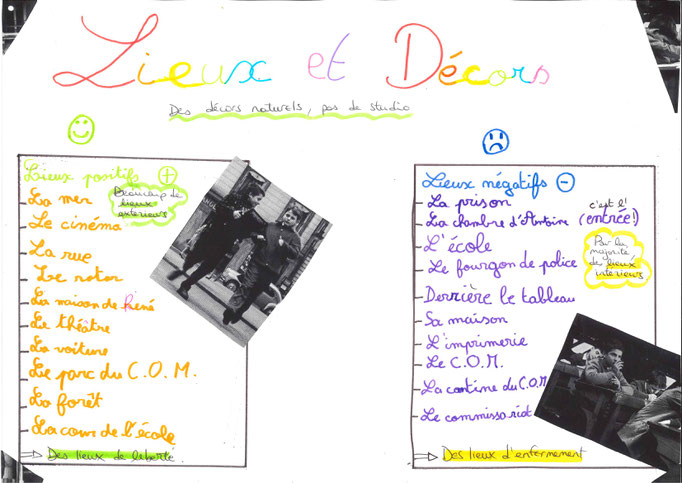 Lieux et Décors
Des décors naturels, pas de studio
Lieux positifs +
Beaucoup de
lieux
extérieurs
La mer
Le cinéma
La rue
Le rotor
La maison de René
Le théâtre
La voiture
Le parc du C.O.M.
La forêt
La cour de l'école
⇒ Des lieux de liberté.
Lieux négatifs -
La prison
La chambre d'Antoine (c'est l'entrée!)
L'école
Le fourgon de police
Par la
majorité
des lieux
intérieurs
Derrière le tableau
Sa maison
L'imprimerie
Le C.O.M.
La cantine du C.O.M
Le commissariat
⇒ Des lieux d'enfermement